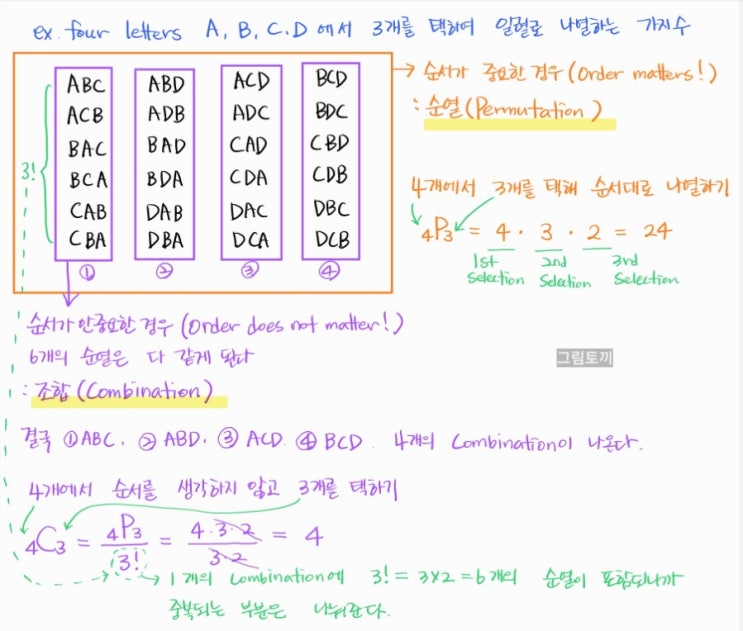 ex. four letters A, B, C, D 에서 3개를 택하여 일렬로 나열하는 가지수
ABC ABD ACD BCD
ACB ADB ADC BDC
BAC BAD CAD CBD
BCA BDA CDA CDB
CAB DAB DAC DBC
CBA DBA DCA DCB
3!
① ② ③ ④
→ 순서가 중요한 경우 (Order matters!)
: 순열 (Permutation)
4개에서 3개를 택해 순서대로 나열하기
₄P₃ = 4 · 3 · 2 = 24
1st selection 2nd selection 3rd selection
순서가 안중요한 경우 (Order does not matter!)
6개의 순열은 다 같게 된다
: 조합 (Combination)
그림토끼
결국 ① ABC, ② ABD, ③ ACD. ④ BCD. 4개의 Combination이 나온다.
4개에서 순서를 생각하지 않고 3개를 택하기
₄C₃ = ₄P₃ / 3! = 4·3·2 / 3·2 = 4
1개의 combination에 3! = 3×2 = 6개의 순열이 포함되니까
중복되는 부분은 나눠준다.